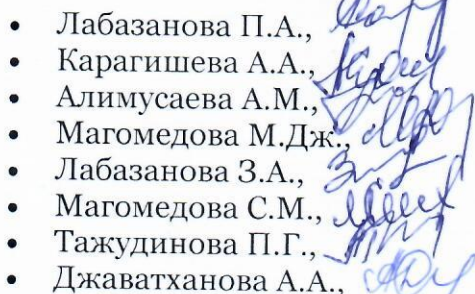 • Лабазанова П.А.,
• Карагишева А.А.,
• Алимусаева А.М.,
• Магомедова М.Дж.,
• Лабазанова З.А.,
• Магомедова С.М.,
• Тажудинова П.Г.,
• Джаватханова А.А.,